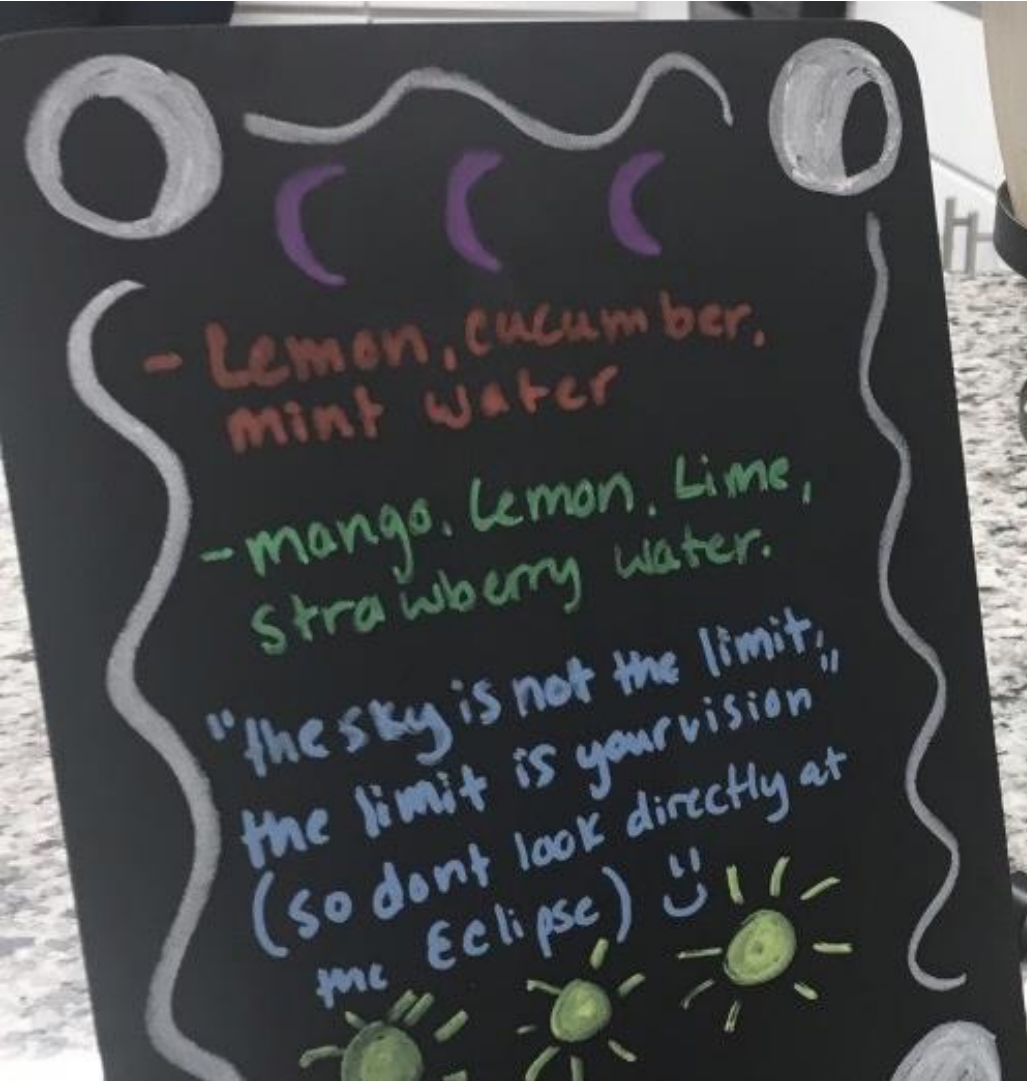 - Lemon, cucumber,
mint water
- mango, Lemon, Lime,
strawberry water.
"the sky is not the limit,
the limit is your vision"
(so dont look directly at
the Eclipse) :)